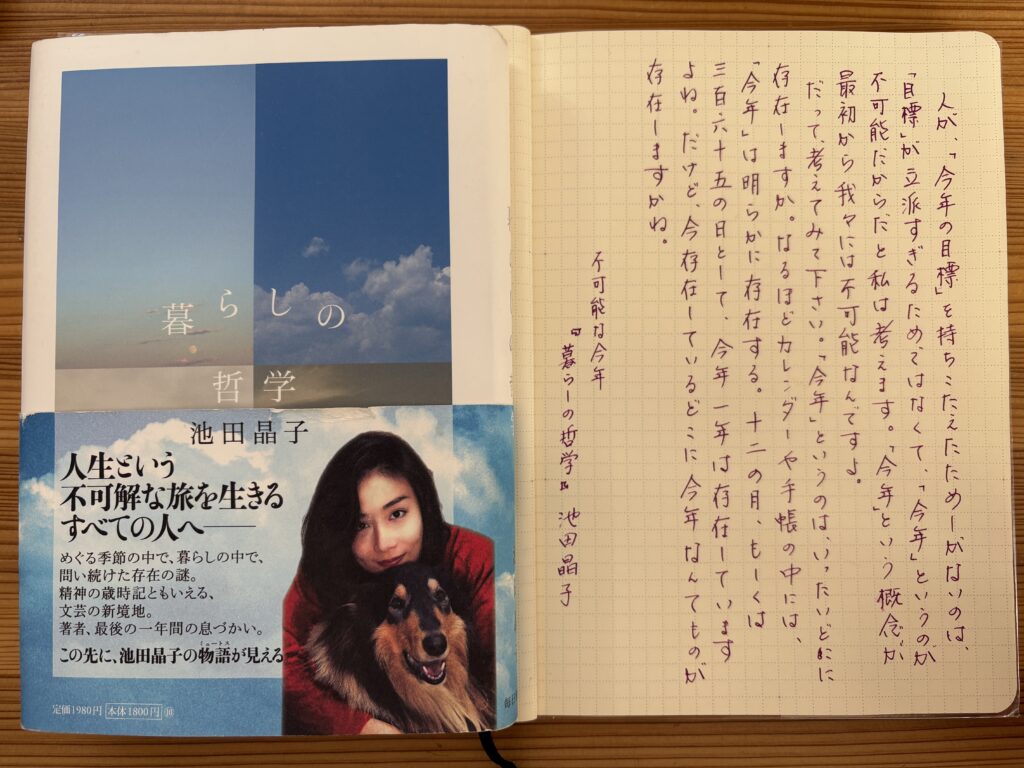 暮らしの
哲学
池田晶子
人生という
不可解な旅を生きる
すべての人へ──
めぐる季節の中で、暮らしの中で、
問い続けた存在の謎。
精神の歳時記ともいえる、
文芸の新境地。
著者、最後の一年間の息づかい。
この先に、池田晶子の物語が見える
ミュートス
定価1980円 本体1800円 ⑩
毎日
人が、「今年の目標」を持ちこたえたためしがないのは、
「目標」が立派すぎるためではなくて、「今年」というのが
不可能だからだと私は考えます。「今年」という概念が
最初から我々には不可能なんですよ。
だって、考えてみて下さい。「今年」というのは、いったいどこに
存在しますか。なるほどカレンダーや手帳の中には、
「今年」は明らかに存在する。十二の月、もしくは
三百六十五の日として、今年一年は存在しています
よね。だけど、今存在しているどこに今年なんてものが
存在しますかね。
不可能な今年
『暮らしの哲学』池田晶子